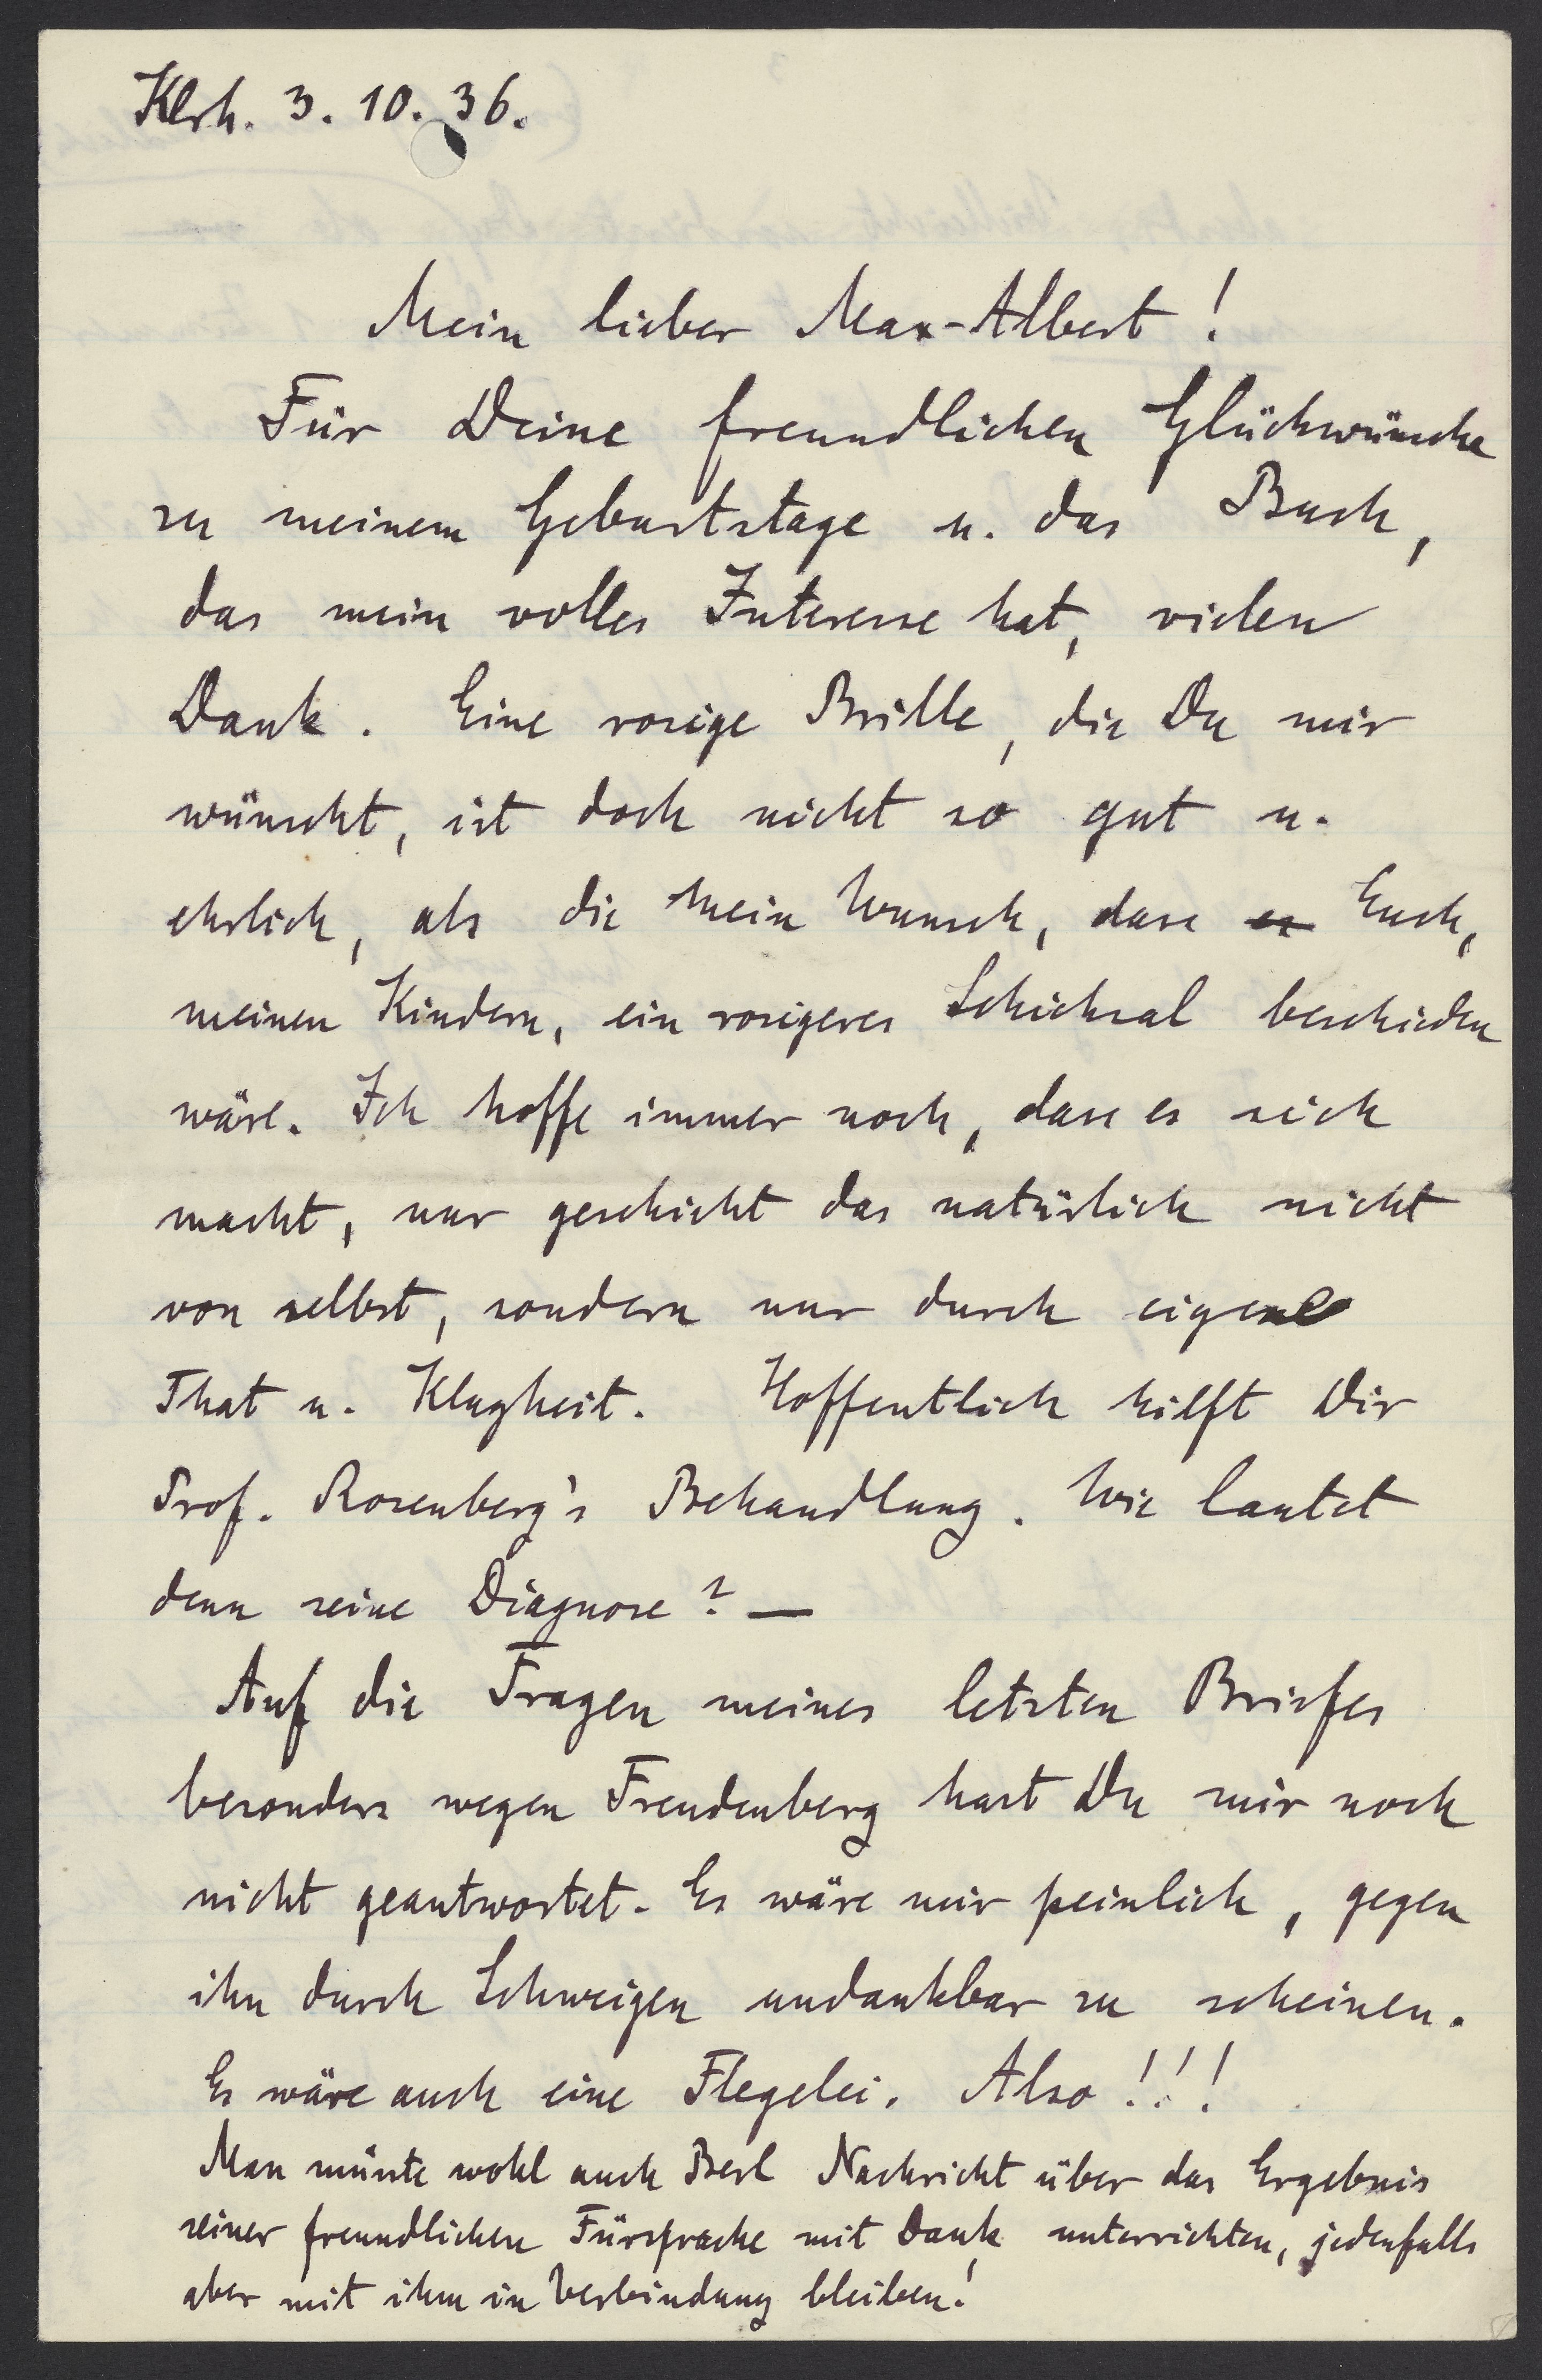 Klrh. 3. 10. 36.
Mein lieber Max-Albert!
Für Deine freundlichen Glückwünsche
zu meinem Geburtstage u. das Buch,
das mein volles Interesse hat, vielen
Dank. Eine rosige Brille, die Du mir
wünscht, ist doch nicht so gut u.
ehrlich, als die Mein Wunsch, dass es Euch,
meinen Kindern, ein rosigeres Schicksal beschieden
wäre. Ich hoffe immer noch, dass es sich
macht, nur geschieht das natürlich nicht
von selbst, sondern nur durch eigene
That u. Klugheit. Hoffentlich hilft Dir
Prof. Rosenberg's Behandlung. Wie lautet
denn seine Diagnose? —
Auf die Fragen meines letzten Briefes
besonders wegen Freudenberg hast Du mir noch
nicht geantwortet. Es wäre mir peinlich, gegen
ihn durch Schweigen undankbar zu scheinen.
Es wäre auch eine Flegelei. Also!!!
Man müsste wohl auch Berl Nachricht über das Ergebnis
seiner freundlichen Fürsprache mit Dank unterrichten, jedenfalls
aber mit ihm in Verbindung bleiben!